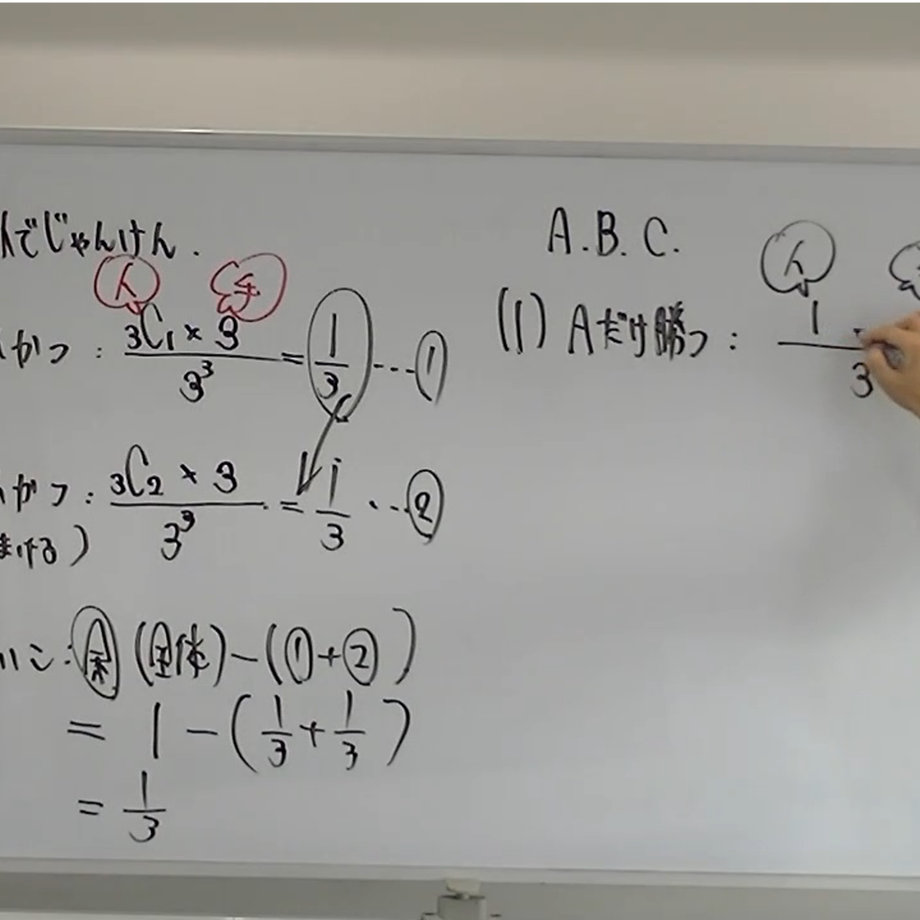 人でじゃんけん.
人 手
かつ : ₃C₁ × 3 / 3³ = 1/3 … ①
かつ : ₃C₂ × 3 / 3³ = 1/3 … ②
まける)
いこ : 余 (全体) - (① + ②)
= 1 - (1/3 + 1/3)
= 1/3
A. B. C.
人
(1) Aだけ勝つ : 1 / 3